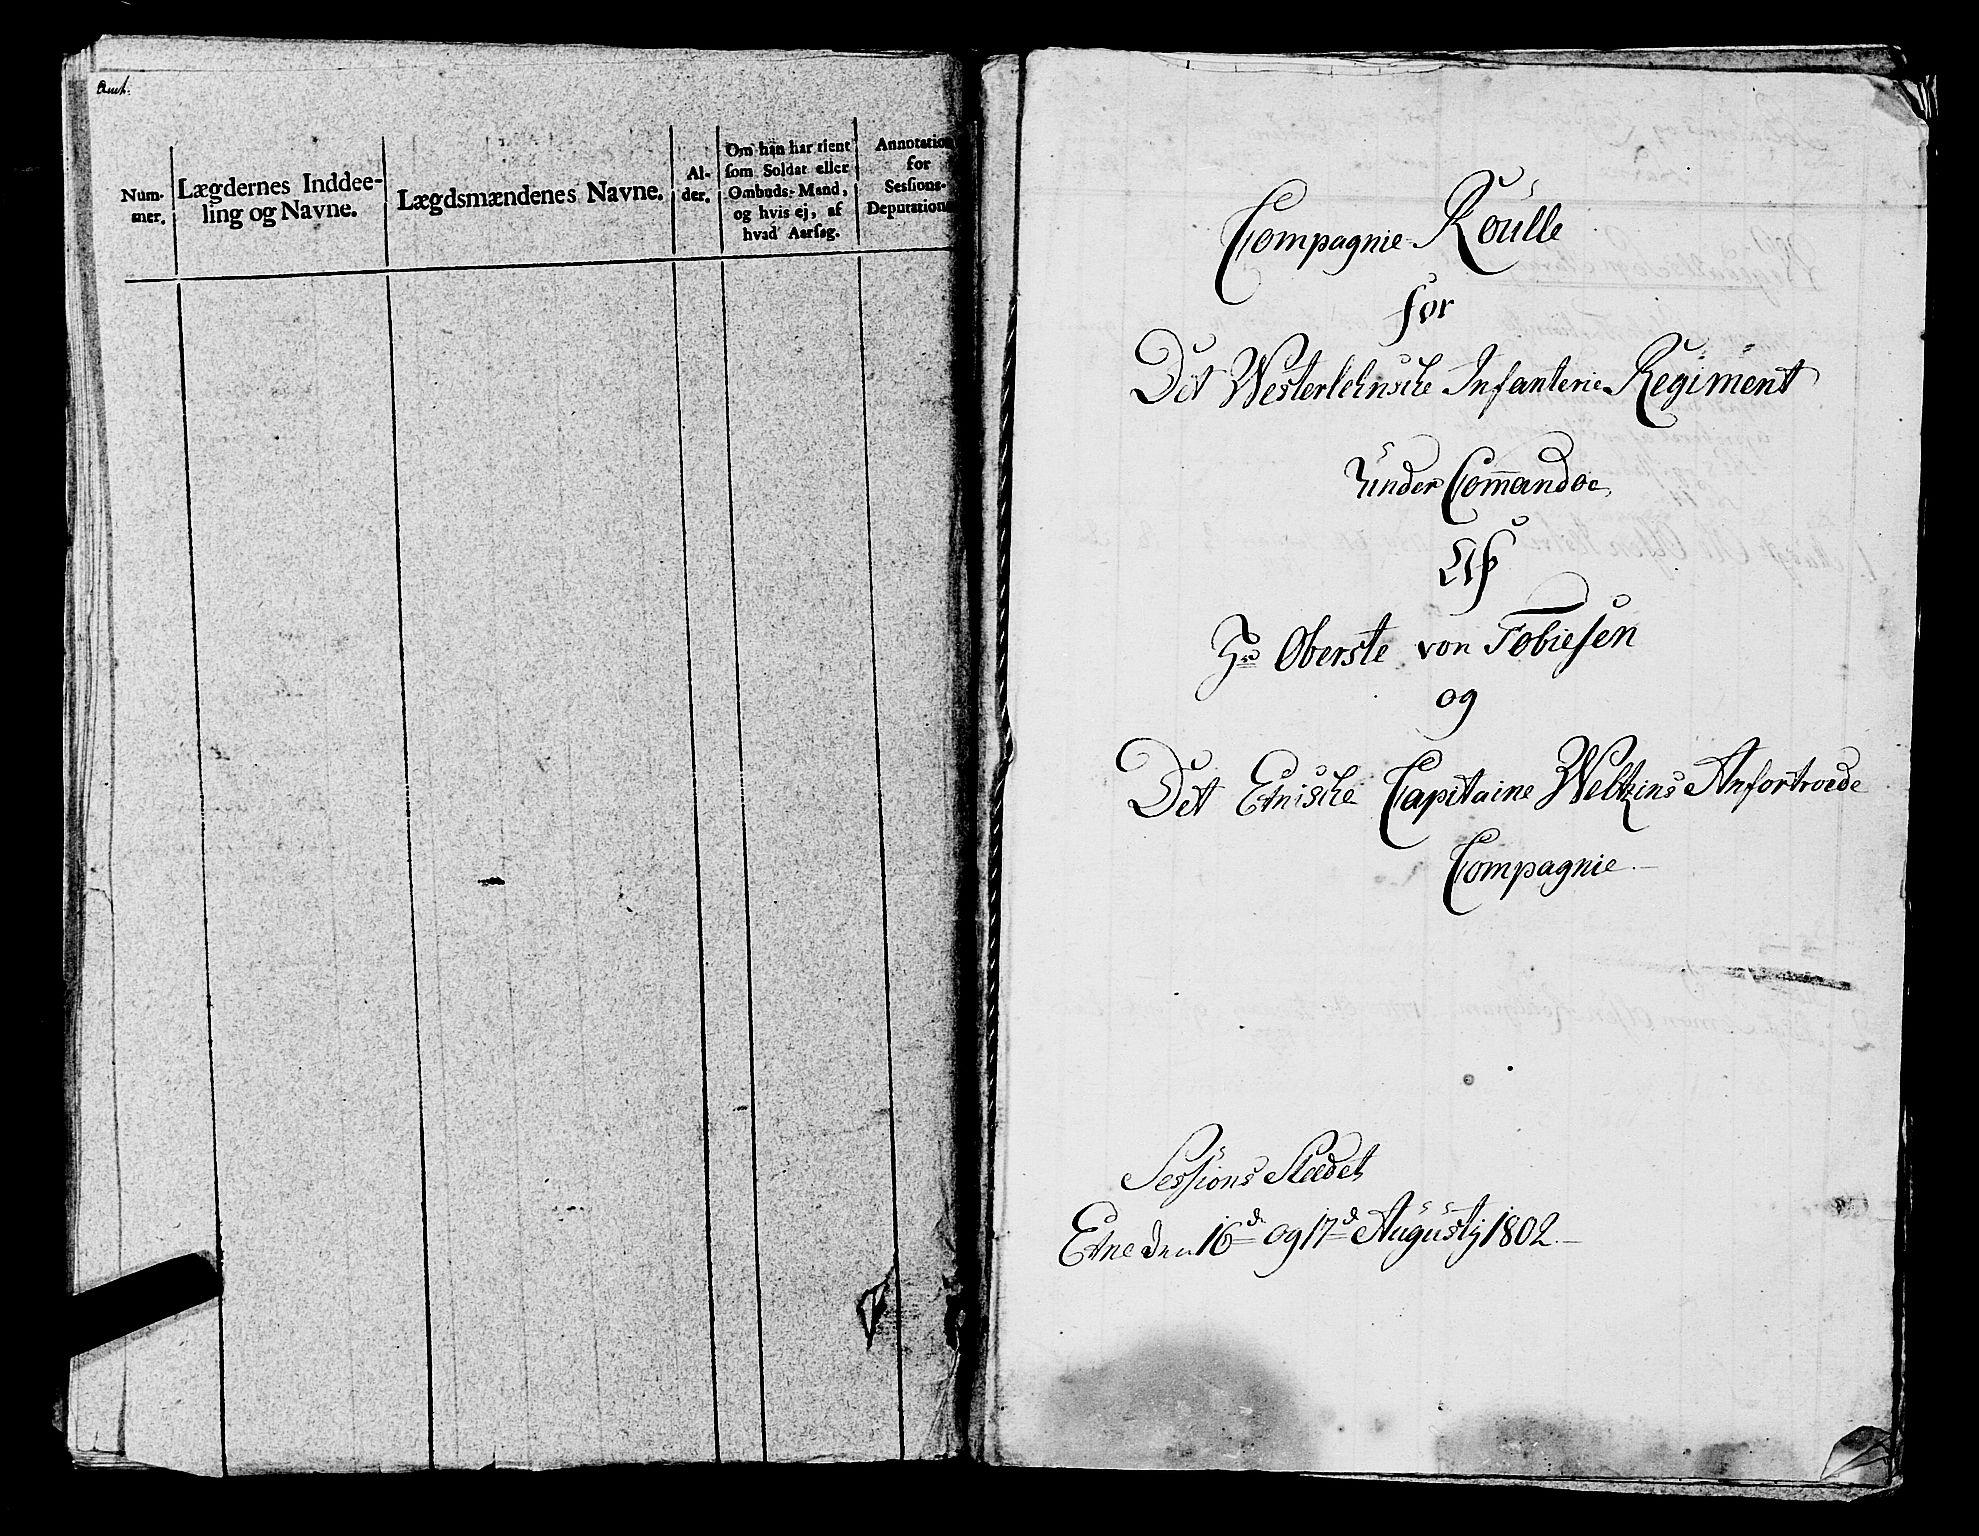 Num-
mer.
Lægdernes Inddee-
ling og Navne.
Lægdsmændenes Navne.
Al-
der.
Om han har tient
som Soldat eller
Ombuds-Mand,
og hvis ej, af
hvad Aarsag.
Annotation
for
Sessions-
Deputation
Compagnie Roulle
for
Det Westerlehnsche Infanterie Regiment
Under Commandoe
Af
Hr Oberste von Tobiesen
og
Det Etnische Capitaine Weltzins Anfortroede
Compagnie
Sessions Stædet
Etne den 16de og 17de Augustij 1802